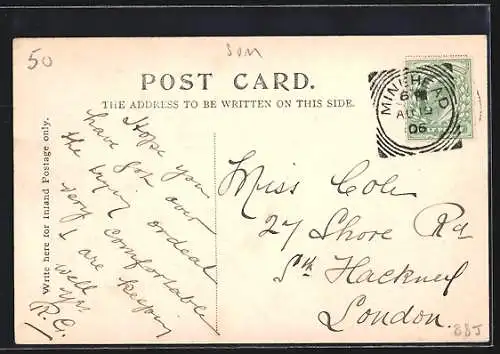 50
Som
POST CARD.
THE ADDRESS TO BE WRITTEN ON THIS SIDE.
Write here for Inland Postage only.
Hope you
have got over
the trying ordeal
very comfortable
& are keeping
well
Yrs
R.C.
MINEHEAD
AU
06
Miss Cole
27 Shore Rd
Sth Hackney
London.